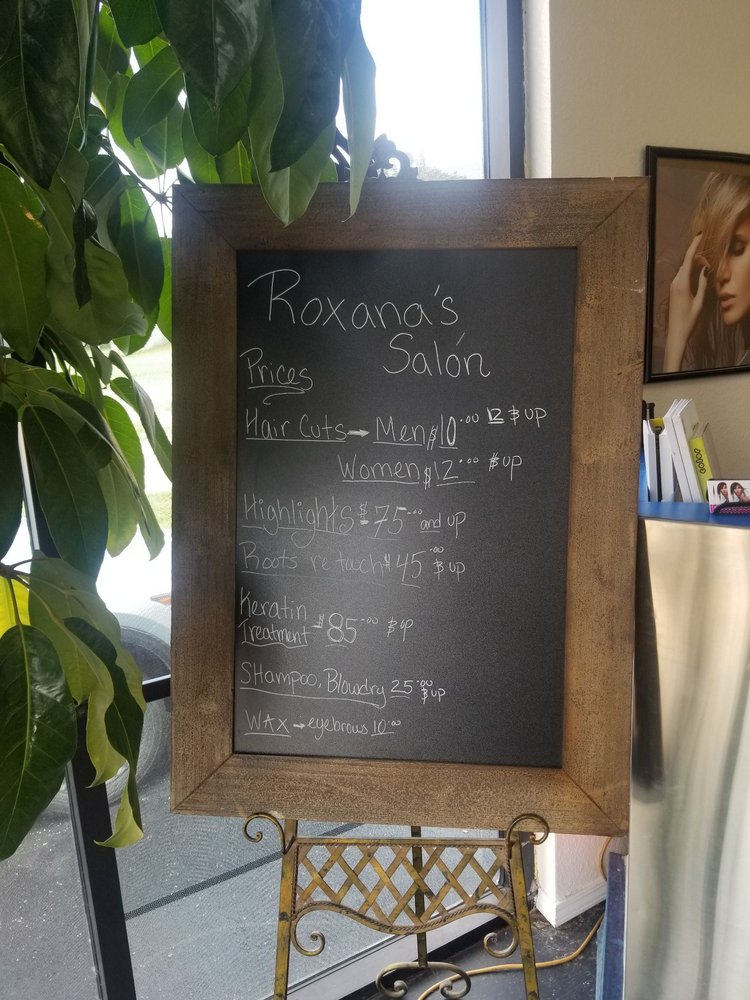 Roxana's
Salón
Prices
Hair Cuts → Men $10.00 12 $ UP
Women $12.00 $ UP
Highlights $75.00 and up
Roots re tuch $45.00 $ UP
Keratin
Treatment - $85.00 $ UP
SHampoo, Blowdry 25.00 $ UP
WAX → eyebrows 10.00